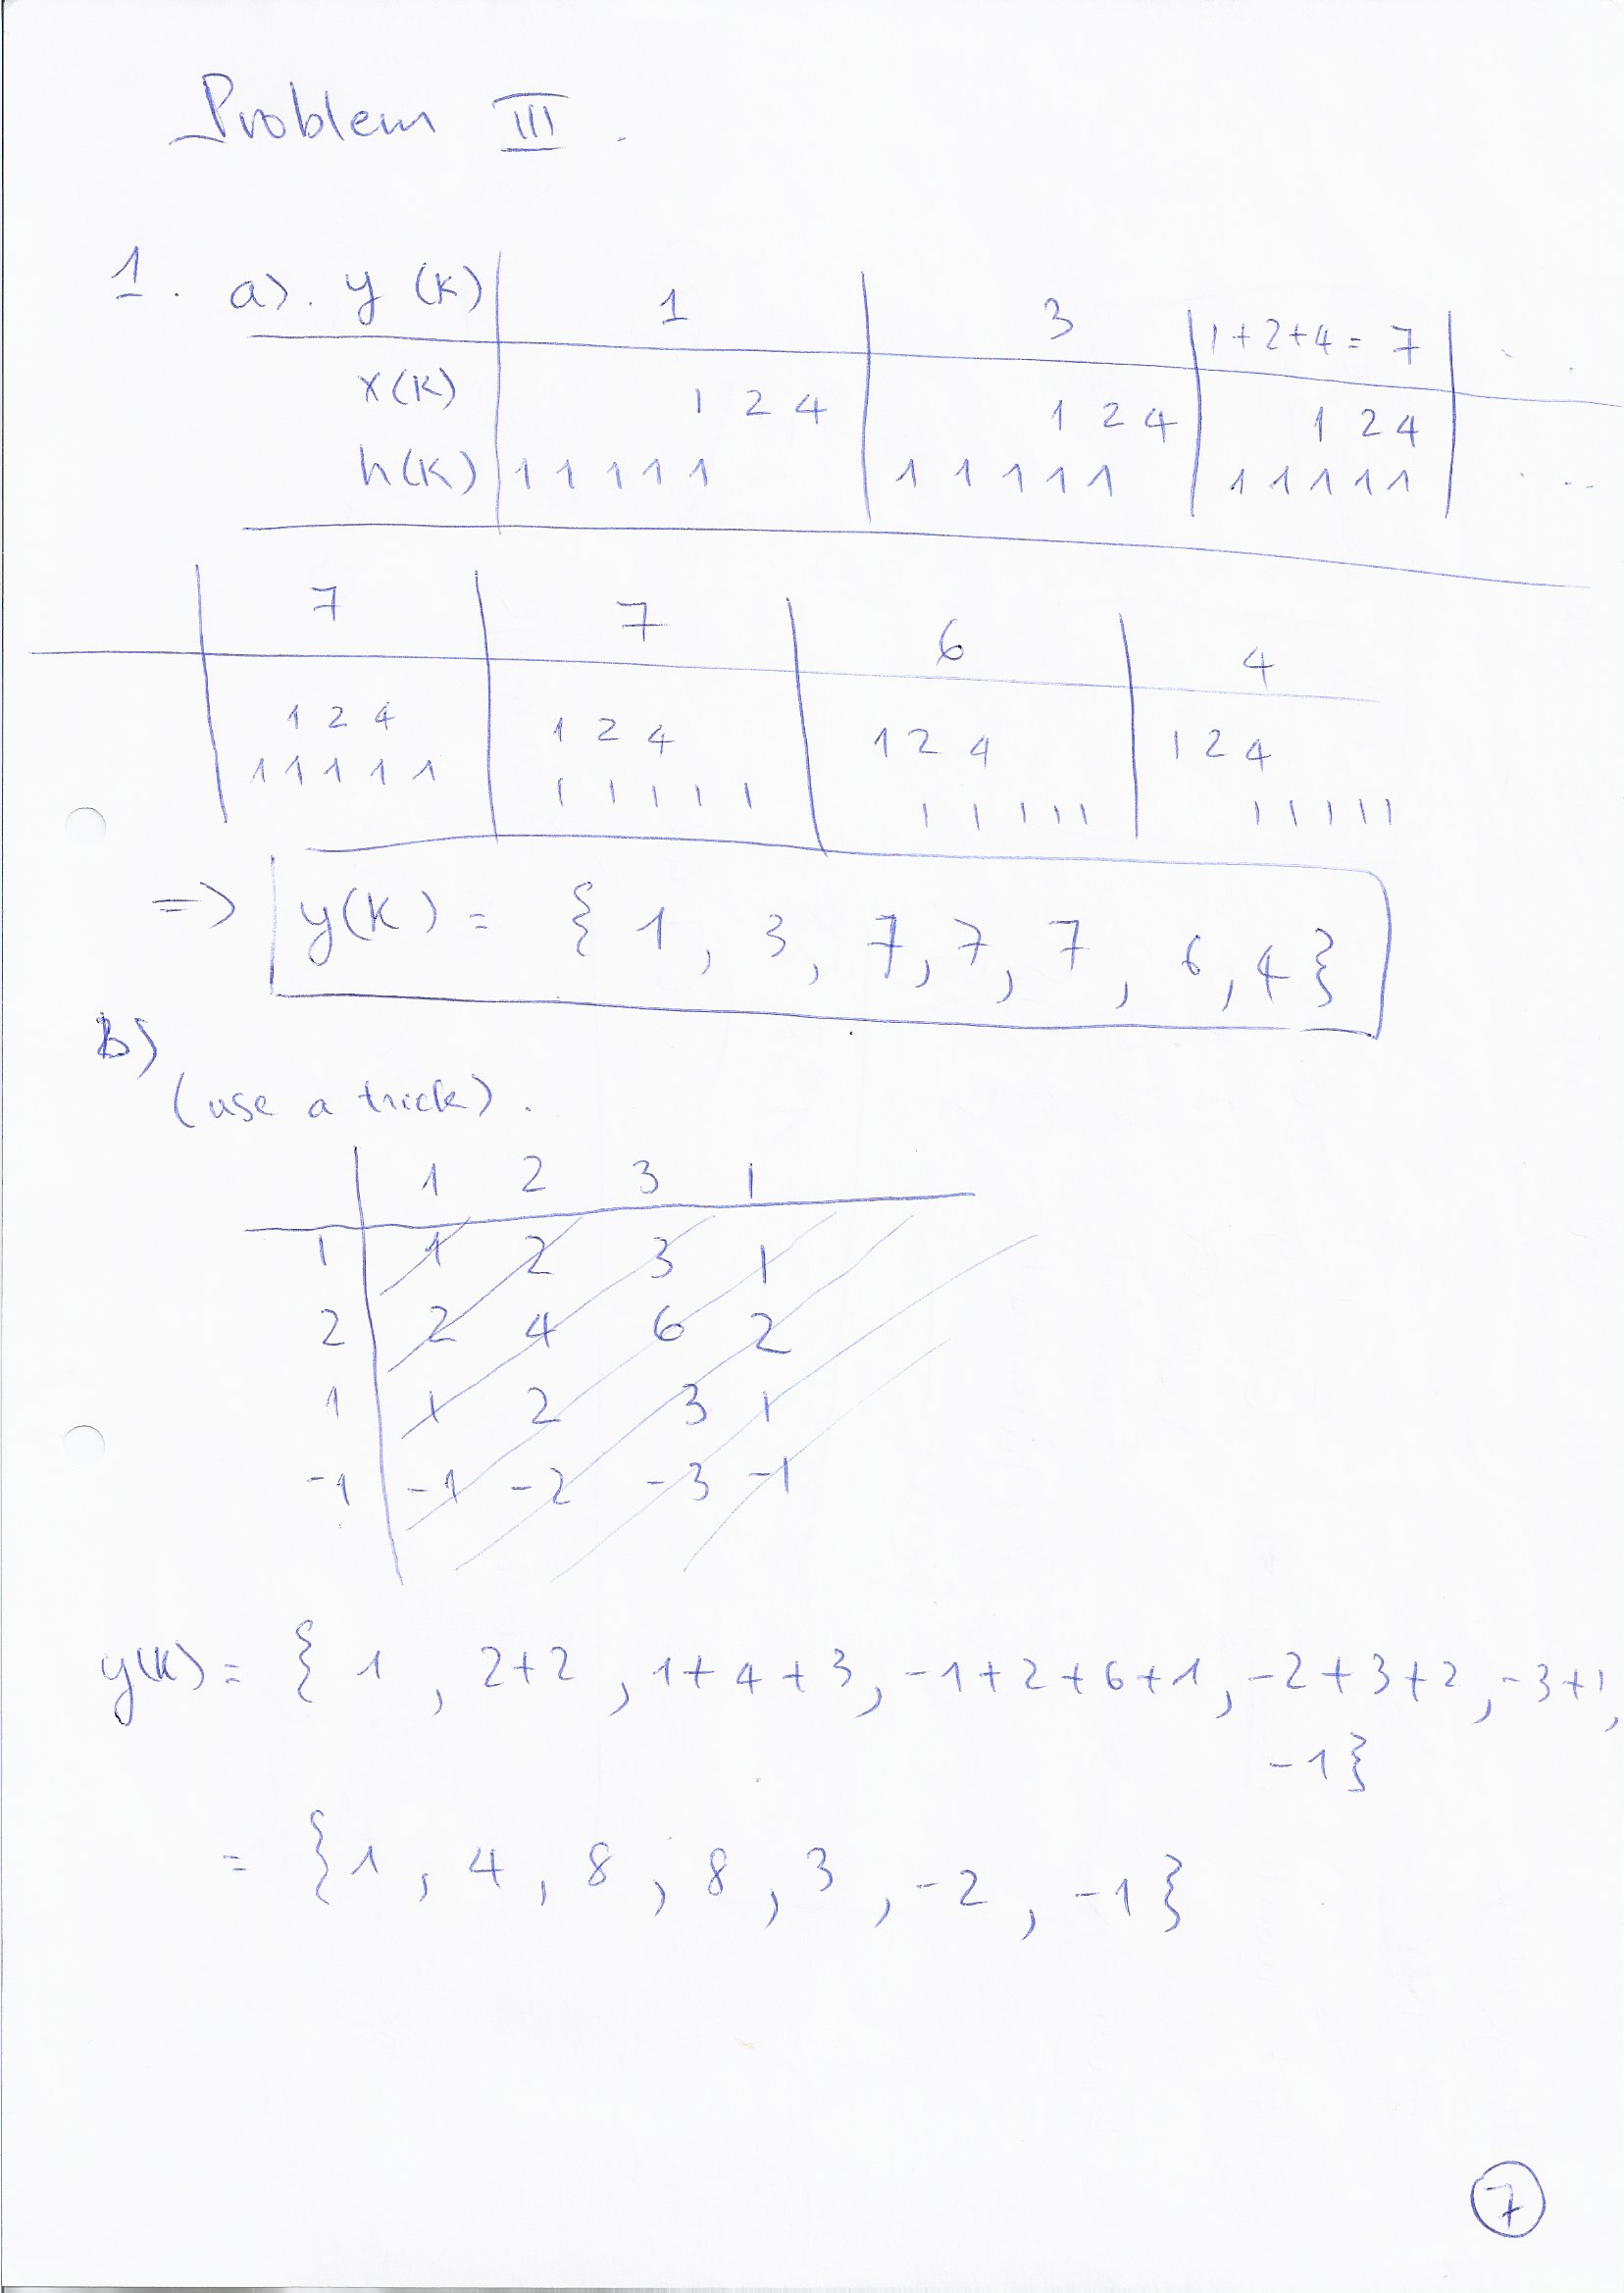 Problem III.
1. a). y (k) 1 3 1+2+4 = 7 . .
x(k) 1 2 4 1 2 4 1 2 4
h(k) 1 1 1 1 1 1 1 1 1 1 1 1 1 1 1 . ..
7 7 6 4
1 2 4 1 2 4 1 2 4 1 2 4
1 1 1 1 1 1 1 1 1 1 1 1 1 1 1 1 1 1 1 1
=> y(k) = { 1 , 3 , 7 , 7 , 7 , 6 , 4 }
B)
(use a trick).
1 2 3 1
1 1 2 3 1
2 2 4 6 2
1 1 2 3 1
-1 -1 -2 -3 -1
y(k) = { 1 , 2+2 , 1+4+3 , -1+2+6+1 , -2+3+2 , -3+1 ,
-1 }
= { 1 , 4 , 8 , 8 , 3 , -2 , -1 }
7